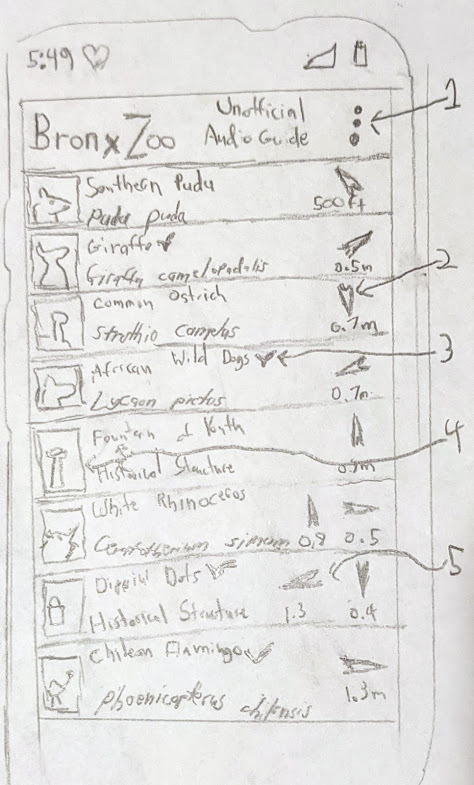 5:49
Bronx Zoo
Unofficial
Audio Guide
1
Southern Pudu
Pudu puda
500ft
Giraffe
Giraffa camelopadalis
0.5m
2
Common Ostrich
Struthio camelus
0.7m
African Wild Dogs
3
Lycaon pictus
0.7m
Fountain of Youth
4
Historical Structure
0.9m
White Rhinoceros
Ceratotherium simum 0.9 0.5
5
Dippin' Dots
Historical Structure 1.3 0.4
Chilean Flamingo
Phoenicopterus chilensis
1.3m